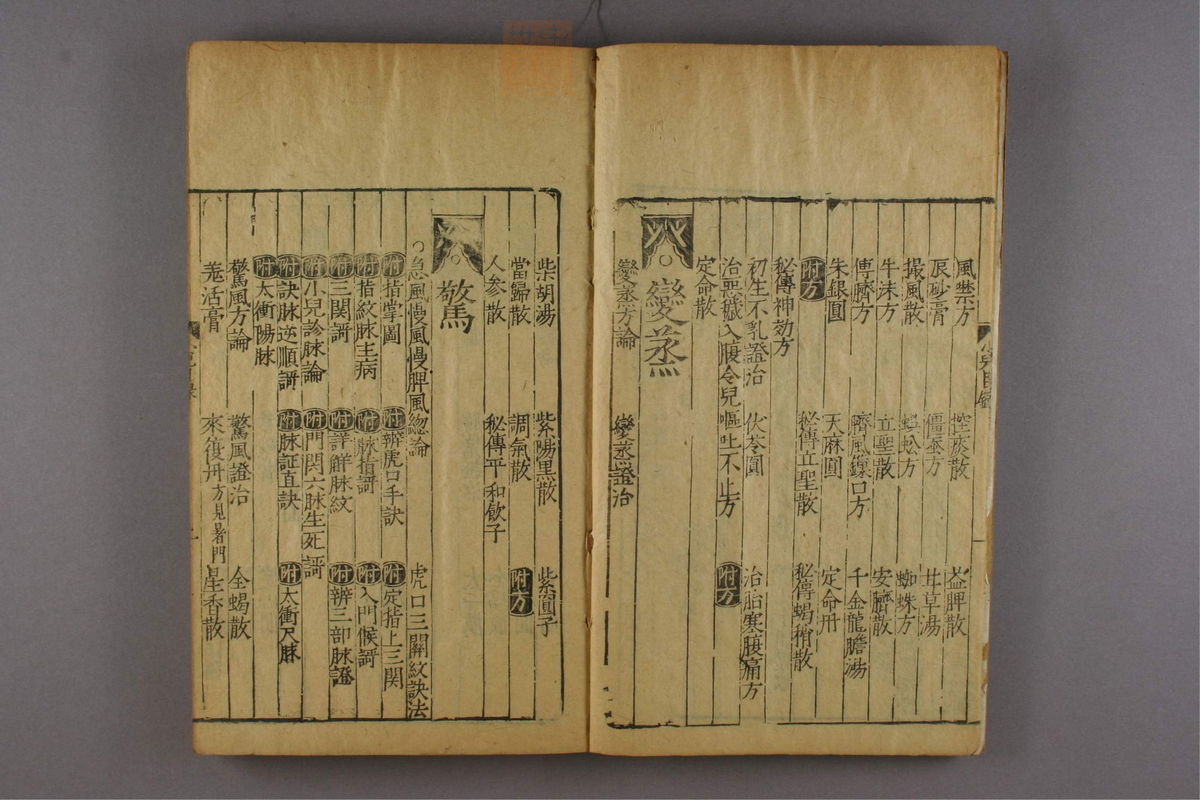 風禁方 控痰散 益脾散
辰砂膏 殭蚕方 甘草湯
撮風散 蜈蚣方 蜘蛛方
牛沫方 立聖散 安臍散
傅臍方 臍風鎖口方 千金龍膽湯
朱銀圓 天麻圓 定命丹
附方 秘傳立聖散 秘傳蝎梢散
秘傳神効方
初生不乳證治 伏苓圓 治胎寒腹痛方
治惡穢入腹令兒嘔吐不止方 附方
定命散
變蒸
變蒸方論 變蒸證治
柴胡湯 紫陽黑散 紫圓子
當歸散 調氣散 附方
人參散 秘傳平和飲子
驚
急風慢風慢脾風緫論 虎口三關紋訣法
附指掌圖 附辨虎口手訣 附定指上三関
附指紋脉主病 附脉指謌 附入門候謌
附三関謌 附詳觧脉紋 附辨三部脉證
附小兒診脉論 附門関六脉生死謌
附訣脉逆順謌 附脉証直訣 附太衝尺脉
附太衝陽脉
驚風方論 驚風證治 全蝎散
羗活膏 來復丹方見暑門 星香散